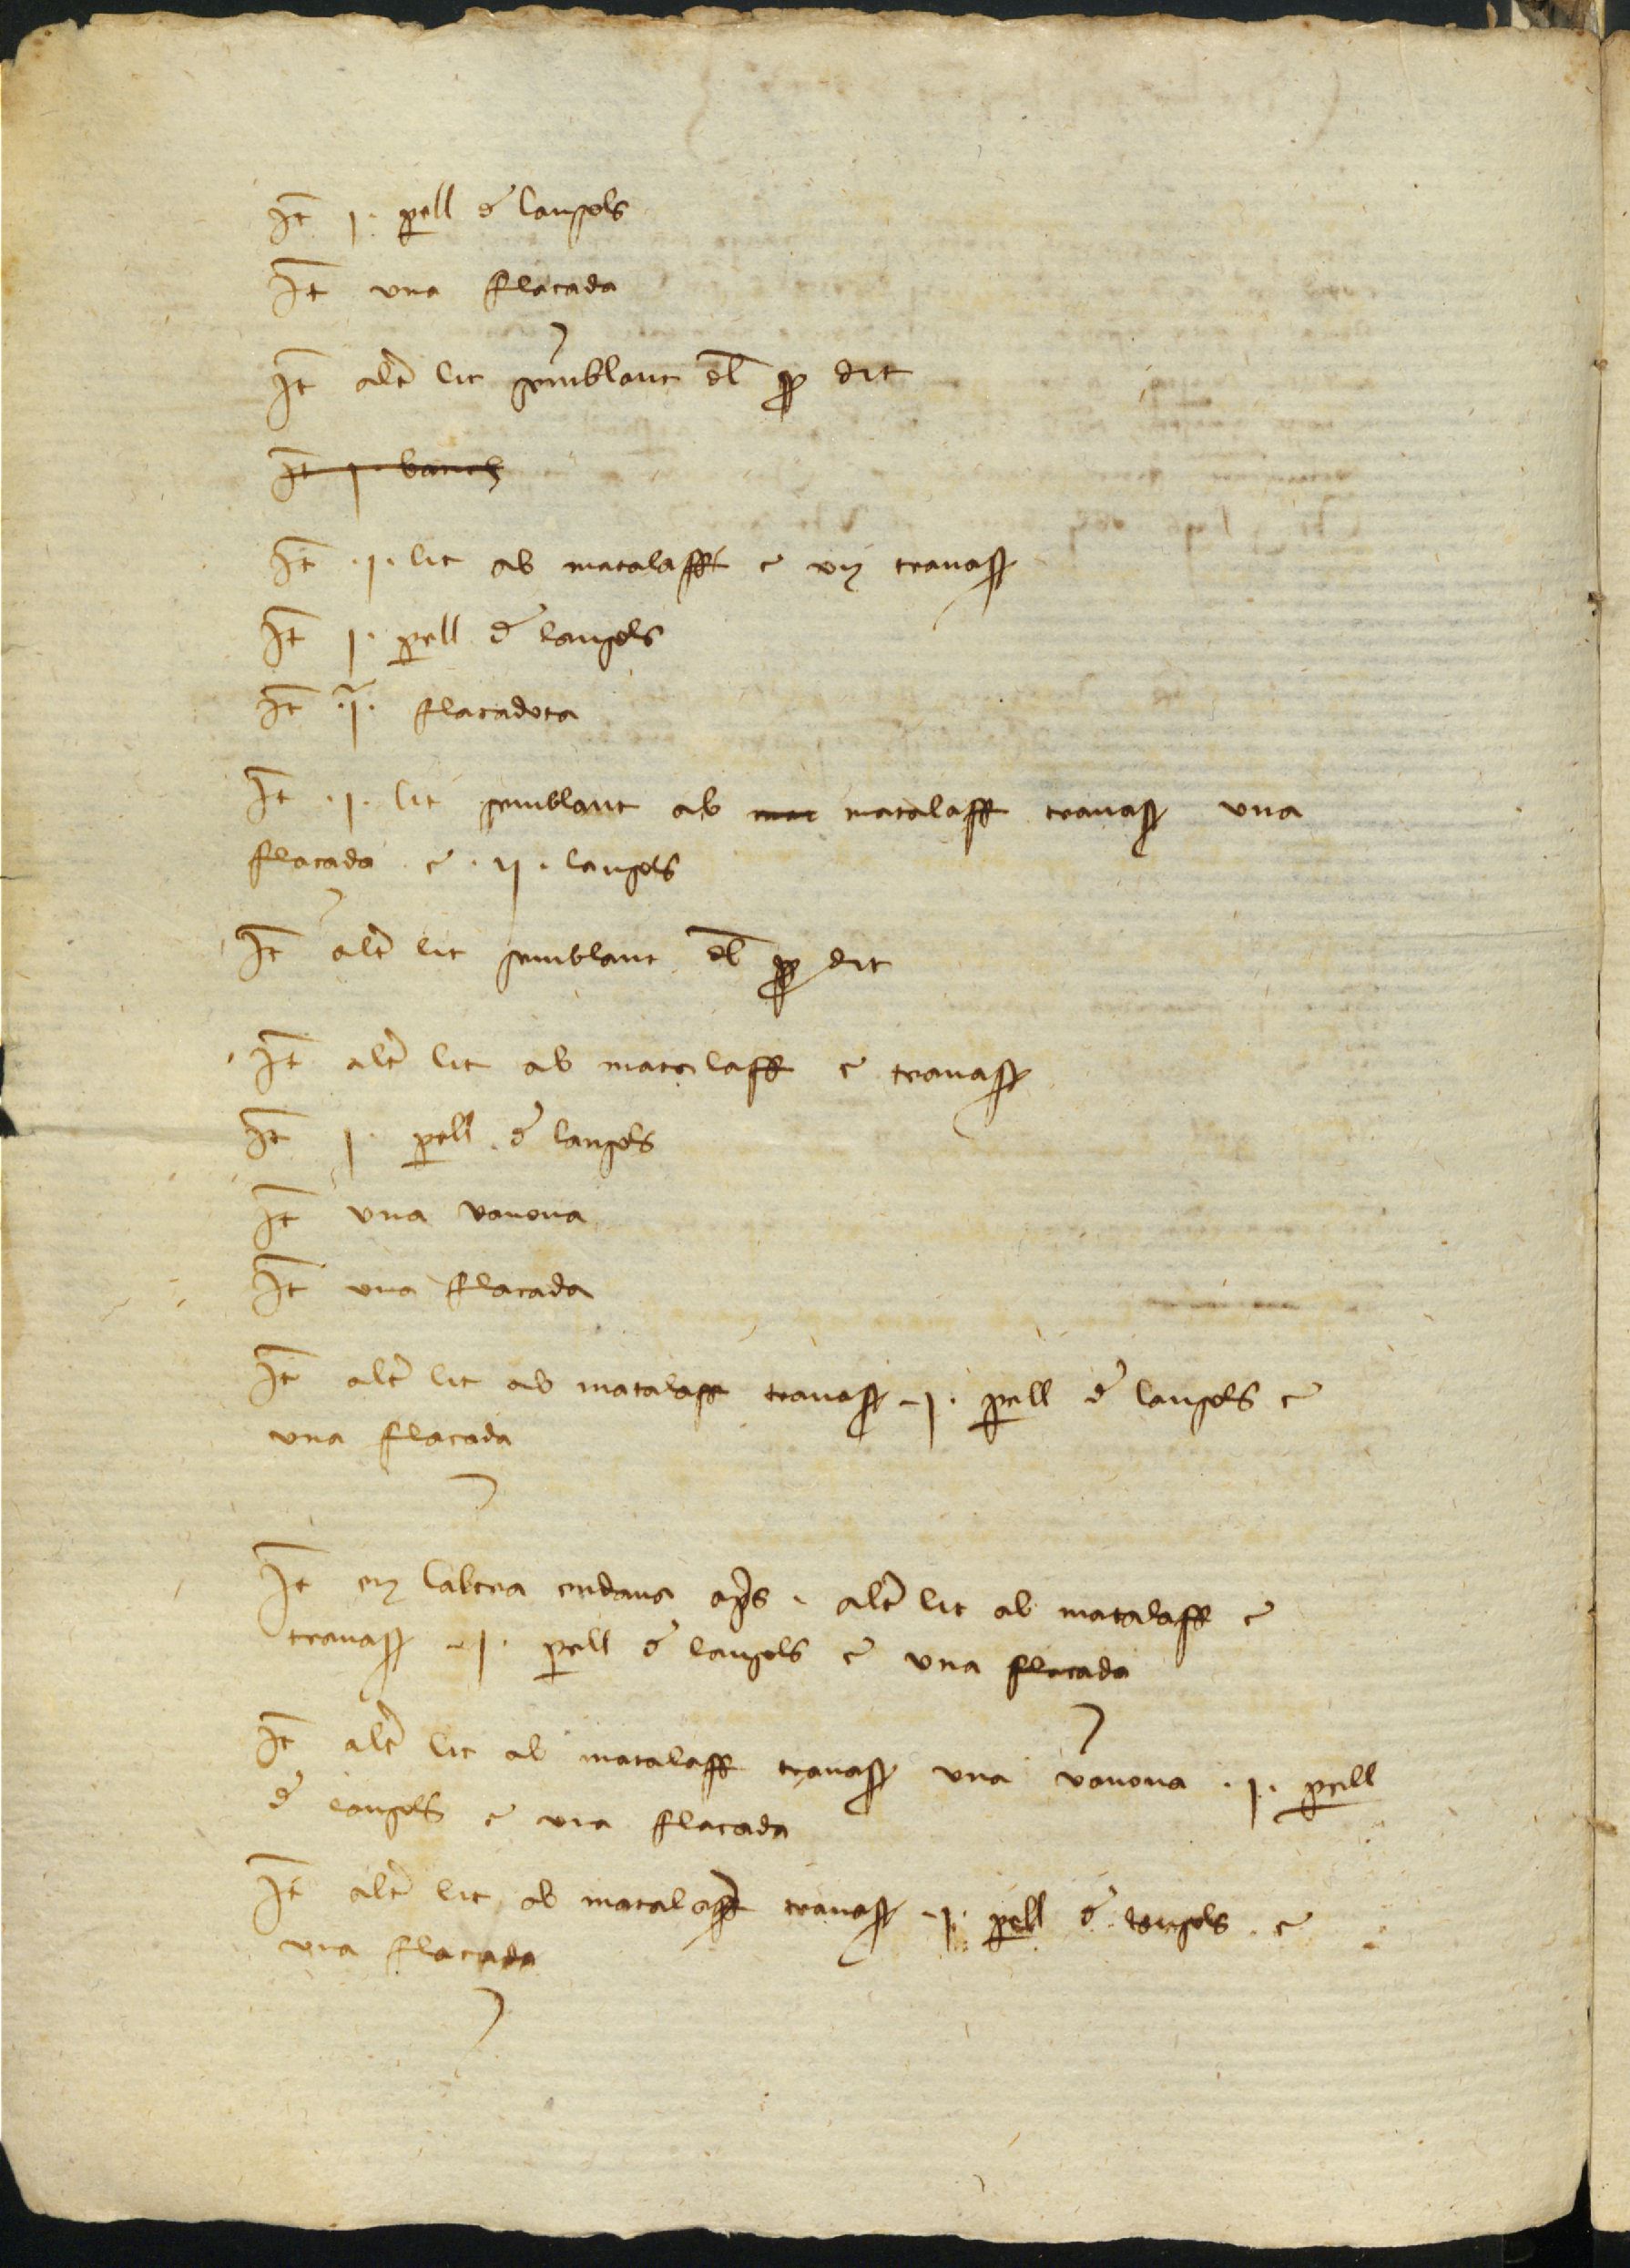 It j. pell d lansols
It una flacada
It altr lit semblant del pp dit
It j. banch
It .j. lit ab matalaff e un travasser
It j. pell d lansols
It .j.a flacadota
It .j. lit semblant ab mat matalaff travasser una
flacada e .ij. lansols
It altr lit semblant del pp dit
It altr lit ab matalaff e travasser
It j. pell d lansols
It una vanova
It una flacada
It altr lit ab matalaff travasser .j. pell d lansols e
una flacada
It en laltra endana aprs altr lit ab matalaff e
travasser .j. pell d lansols e una flacada
It altr lit ab matalaff travasser una vanova .j. pell
d lansols e una flacada
It altr lit ab matalaff travasser .j. pell d lensols e
una flacada